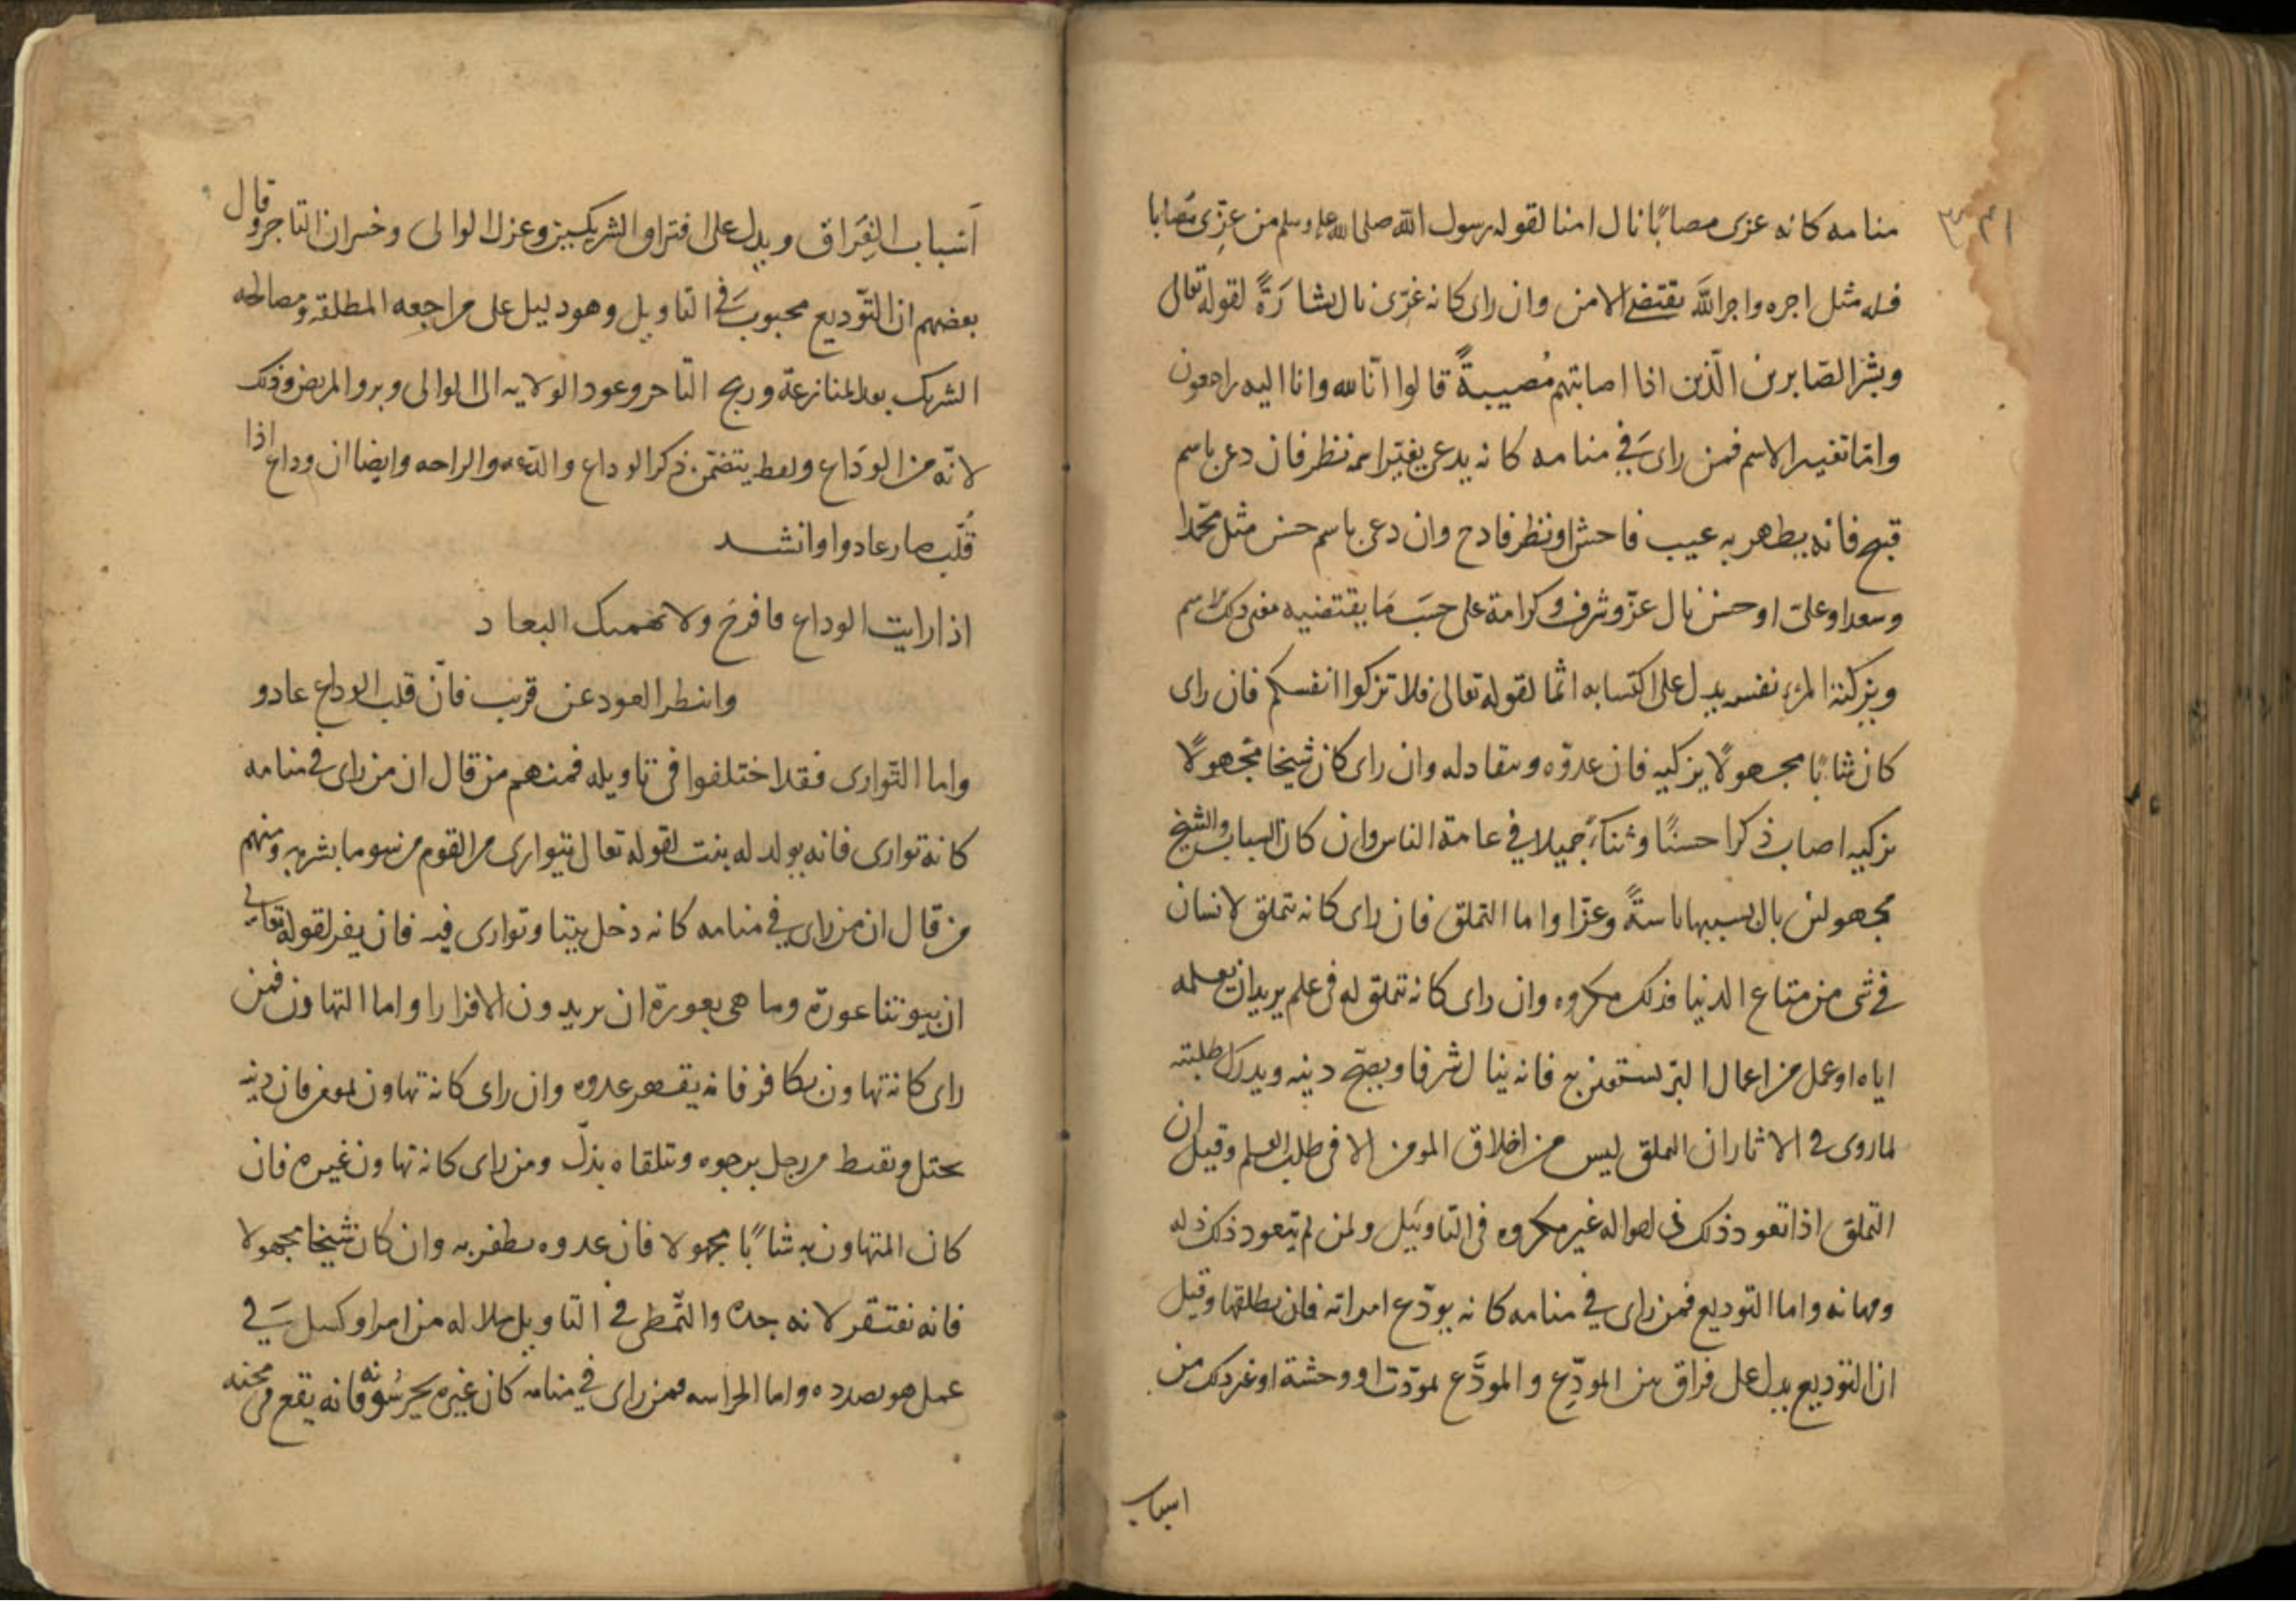 ٣٣١
منامه كانه عزى مصابًا نال امنا لقوله رسول الله صلى الله عليه وسلم من عزّى مصابا
فله مثل اجره واجر الله يقتضى الامن وان راى كانه عزّى نال بشارةً لقوله تعالى
وبشر الصّابرين الّذين اذا اصابتهم مُصيبةً قالوا انّا لله وانا اليه راجعون
وامّا تغيير الاسم فمن راى في منامه كانه يدعى بغير اسمه نظر فان دعى باسم
قبيح فانه يظهر به عيب فاحش او نظر فادح وان دعى باسم حسن مثل محمّدا
وسعدا وعلى او حسن نال عزّ وشرف وكرامة على حسَب مَا يقتضيه معنى ذلك الاسم
وتزكية المرء نفسه يدل على اكتسابه اثما لقوله تعالى فلا تزكوا انفسكم فان راى
كان شابًا مجهولًا يزكيه فان عدوّه ينقاد له وان راى كان شيخا مجهولًا
يزكيه اصاب ذكرا حسنًا وثناءً جميلا في عامة الناس وان كان الشاب والشيخ
مجهولين نال بسببها رياسةً وعزّا واما التملق فان راى كانه تملق لانسان
في شى من متاع الدنيا فذلك مكروه وان راى كانه تملق له في علم يريد ان يعلمه
اياه او عمل من اعمال البرّ يستعين به فانه ينال شرفا ويصحّ دينه ويدرك طلبته
لما روى في الاثار ان التملق ليس من اخلاق المومن الا في طلب العلم وقيل ان
التملق اذا تعود ذلك في احواله غير مكروه في التاويل ولمن لم يتعود ذلك ذله
ومهانه واما التوديع فمن راى في منامه كانه يودّع امراته فان يطلقها وقيل
ان التوديع يدل على فراق بين المودِّع والمودَّع بموت او وحشة او غير ذلك من
اسباب
اَسباب الفِرَاق ويدل على افتراق الشريكين وعزل الوالى وخسران التاجر وقال
بعضهم ان التوّديع محبوب في التاويل وهو دليل على مراجعه المطلقة ومصالحه
الشريك بعد المنازعة وربح التاجر وعود الولايه الى الوالى وبرو المريض وذلك
لانّه من الودَاع ولفظ يتضمّن ذكر الوداع والدّعه والراحه وايضا ان وداع اذا
قُلب صار عادوا وانشد
اذا رايت الوداع فافرح ولا يهمنك البعاد
وانتظر العود عن قريب فانّ قلب الوداع عادو
واما التوارى فقد اختلفوا في تاويله فمنهم من قال ان من راى في منامه
كانه توارى فانه يولد له بنت لقوله تعالى يتوارى من القوم من سوء ما بشر به ومنهم
من قال ان من راى في منامه كانه دخل بيتا وتوارى فيه فان يفر لقوله تعالى
ان بيوتنا عورة وما هى بعورة ان يريدون الا فرارا واما التهاون فمن
راى كانه تهاون بكافر فانه يقهر عدوه وان راى كانه تهاون بمومن فان دينه
يختل ويقنط من رجل يرجوه ويتلقاه بذلّ ومن راى كانه تهاون غيره فان
كان المتهاون به شابًا مجهولا فان عدوه يظفر به وان كان شيخا مجهولا
فانه يفتقر لانه جده والتّمطى في التاويل ملالة من امر او كسل في
عمل هو بصدده واما الحراسه فمن راى في منامه كان غيره يحرسونه فانه يقع في محنه